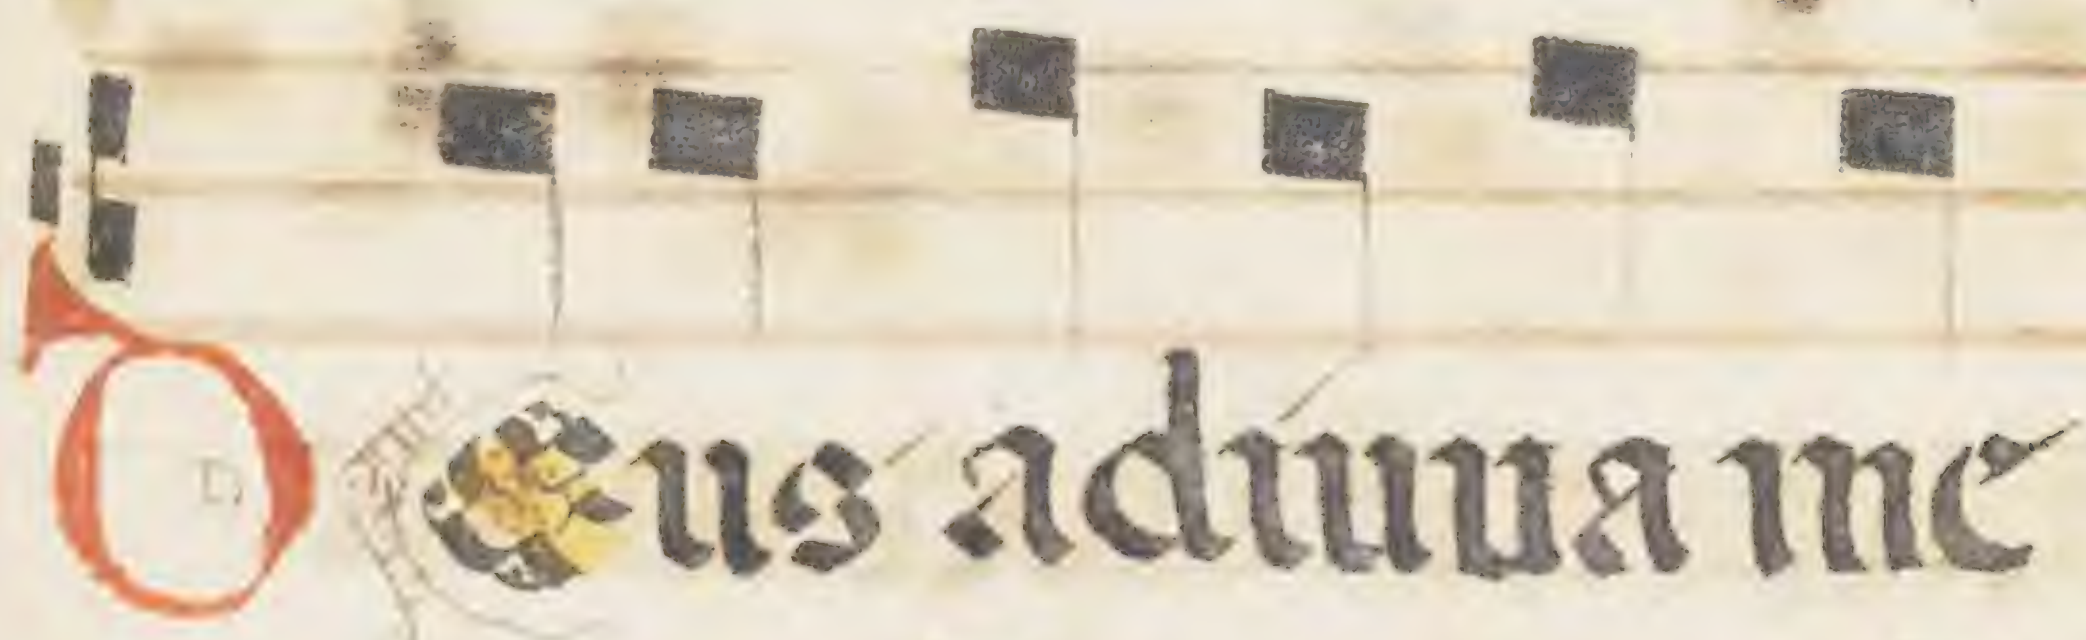 Deus adiuua me